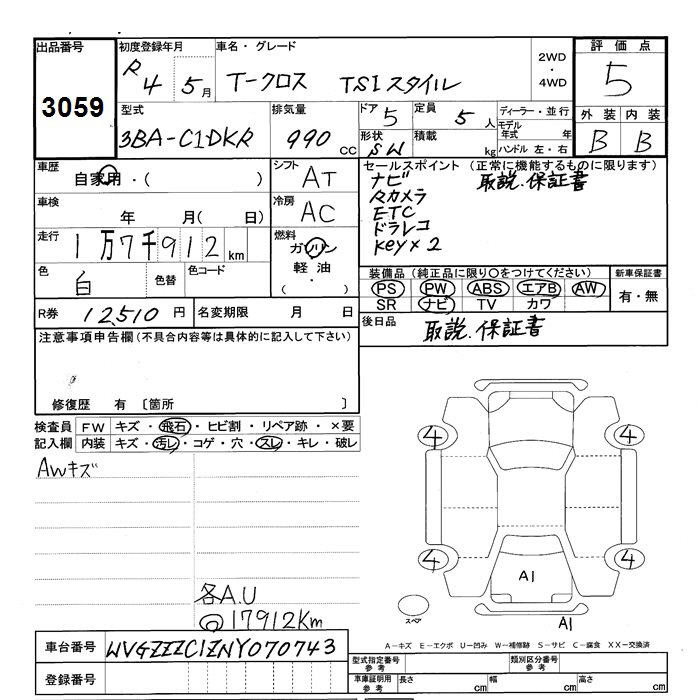 出品番号 初度登録年月 車名・グレード 2WD ・ 4WD 評価点
3059 R4 5月 T-クロス TSIスタイル 5
型式 排気量 ドア 定員 ディーラー・並行 外装 内装
3BA-C1DKR 990cc 5 5人 モデル年式 年 B B
形状 SW 積載 kg ハンドル 左・右
車歴 自家用・( ) シフト AT セールスポイント (正常に機能するものに限ります)
ナビ 取説.保証書
車検 年 月( 日) 冷房 AC
カメラ
ETC
ドラレコ
key×2
走行 1万7千912km 燃料 ガソリン・軽油・( )
色 白 色替 色コード
装備品(純正品に限り○をつけてください) 新車保証書
PS PW ABS エアB AW 有・無
SR ナビ TV カワ
R券 12,510円 名変期限 月 日 後日品 取説.保証書
注意事項申告欄(不具合内容等は具体的に記入して下さい)
修復歴 有 〔箇所 〕
検査員 FW キズ・飛石・ヒビ割・リペア跡・×要
記入欄 内装 キズ・汚レ・コゲ・穴・スレ・キレ・破レ
Awキズ
4 4
4 4
A1
各A.U
17912Km
スペア
A1
A-キズ E-エクボ U-凹み W-補修跡 S-サビ C-腐食 XX-交換済
車台番号 WVGZZZC1ZNY070743
型式指定番号 参考 類別区分番号 参考
登録番号 車庫証明用 参考 長さ cm 幅 cm 高さ cm